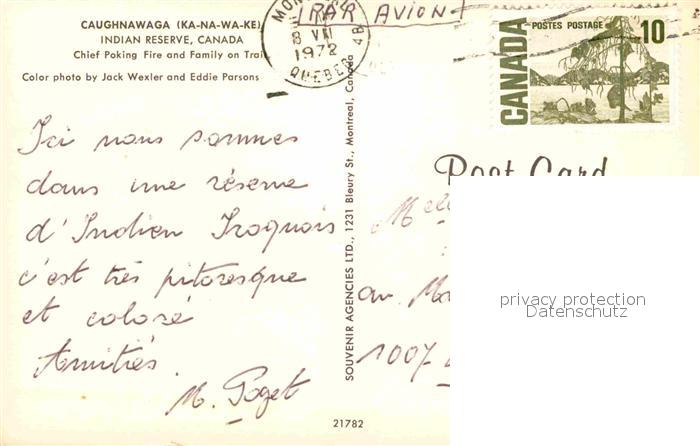 CAUGHNAWAGA (KA-NA-WA-KE)
INDIAN RESERVE, CANADA
Chief Poking Fire and Family on Trail
Color photo by Jack Wexler and Eddie Parsons
PAR AVION
8 VII
1972
QUEBEC
4B
CANADA
POSTES POSTAGE
10
Ici nous sommes
dans une réserve
d'Indien Iroquois
c'est très pitoresque
et coloré
Amitiés.
M. Poget
SOUVENIR AGENCIES LTD., 1231 Bleury St., Montreal, Canada
Post Card
av.
1007
privacy protection
Datenschutz
21782